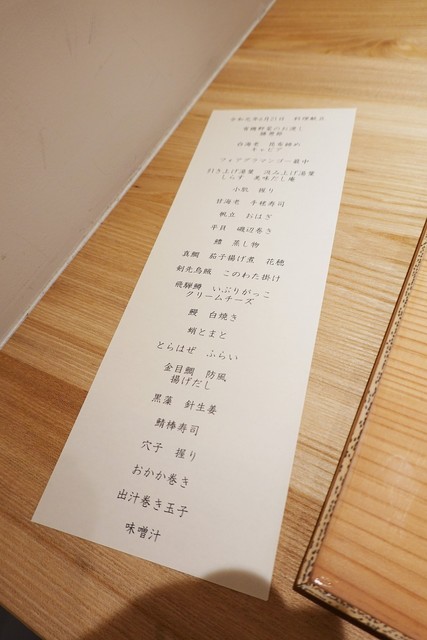 令和元年6月25日 料理献立
有機野菜のお浸し
白海老 昆布締め
キャビア
フォアグラマンゴー最中
引き上げ湯葉 汲み上げ湯葉
しらす 美味だし庵
小肌 握り
甘海老 手毬寿司
帆立 おはぎ
平目 磯辺巻き
鱧 蒸し物
真鯛 茄子揚げ煮 花穂
剣先烏賊 このわた掛け
飛騨鱒 いぶりがっこ
クリームチーズ
鰻 白焼き
蛸とまと
とらはぜ ふらい
金目鯛 防風
揚げだし
黒藻 針生姜
鯖棒寿司
穴子 握り
おかか巻き
出汁巻き玉子
味噌汁